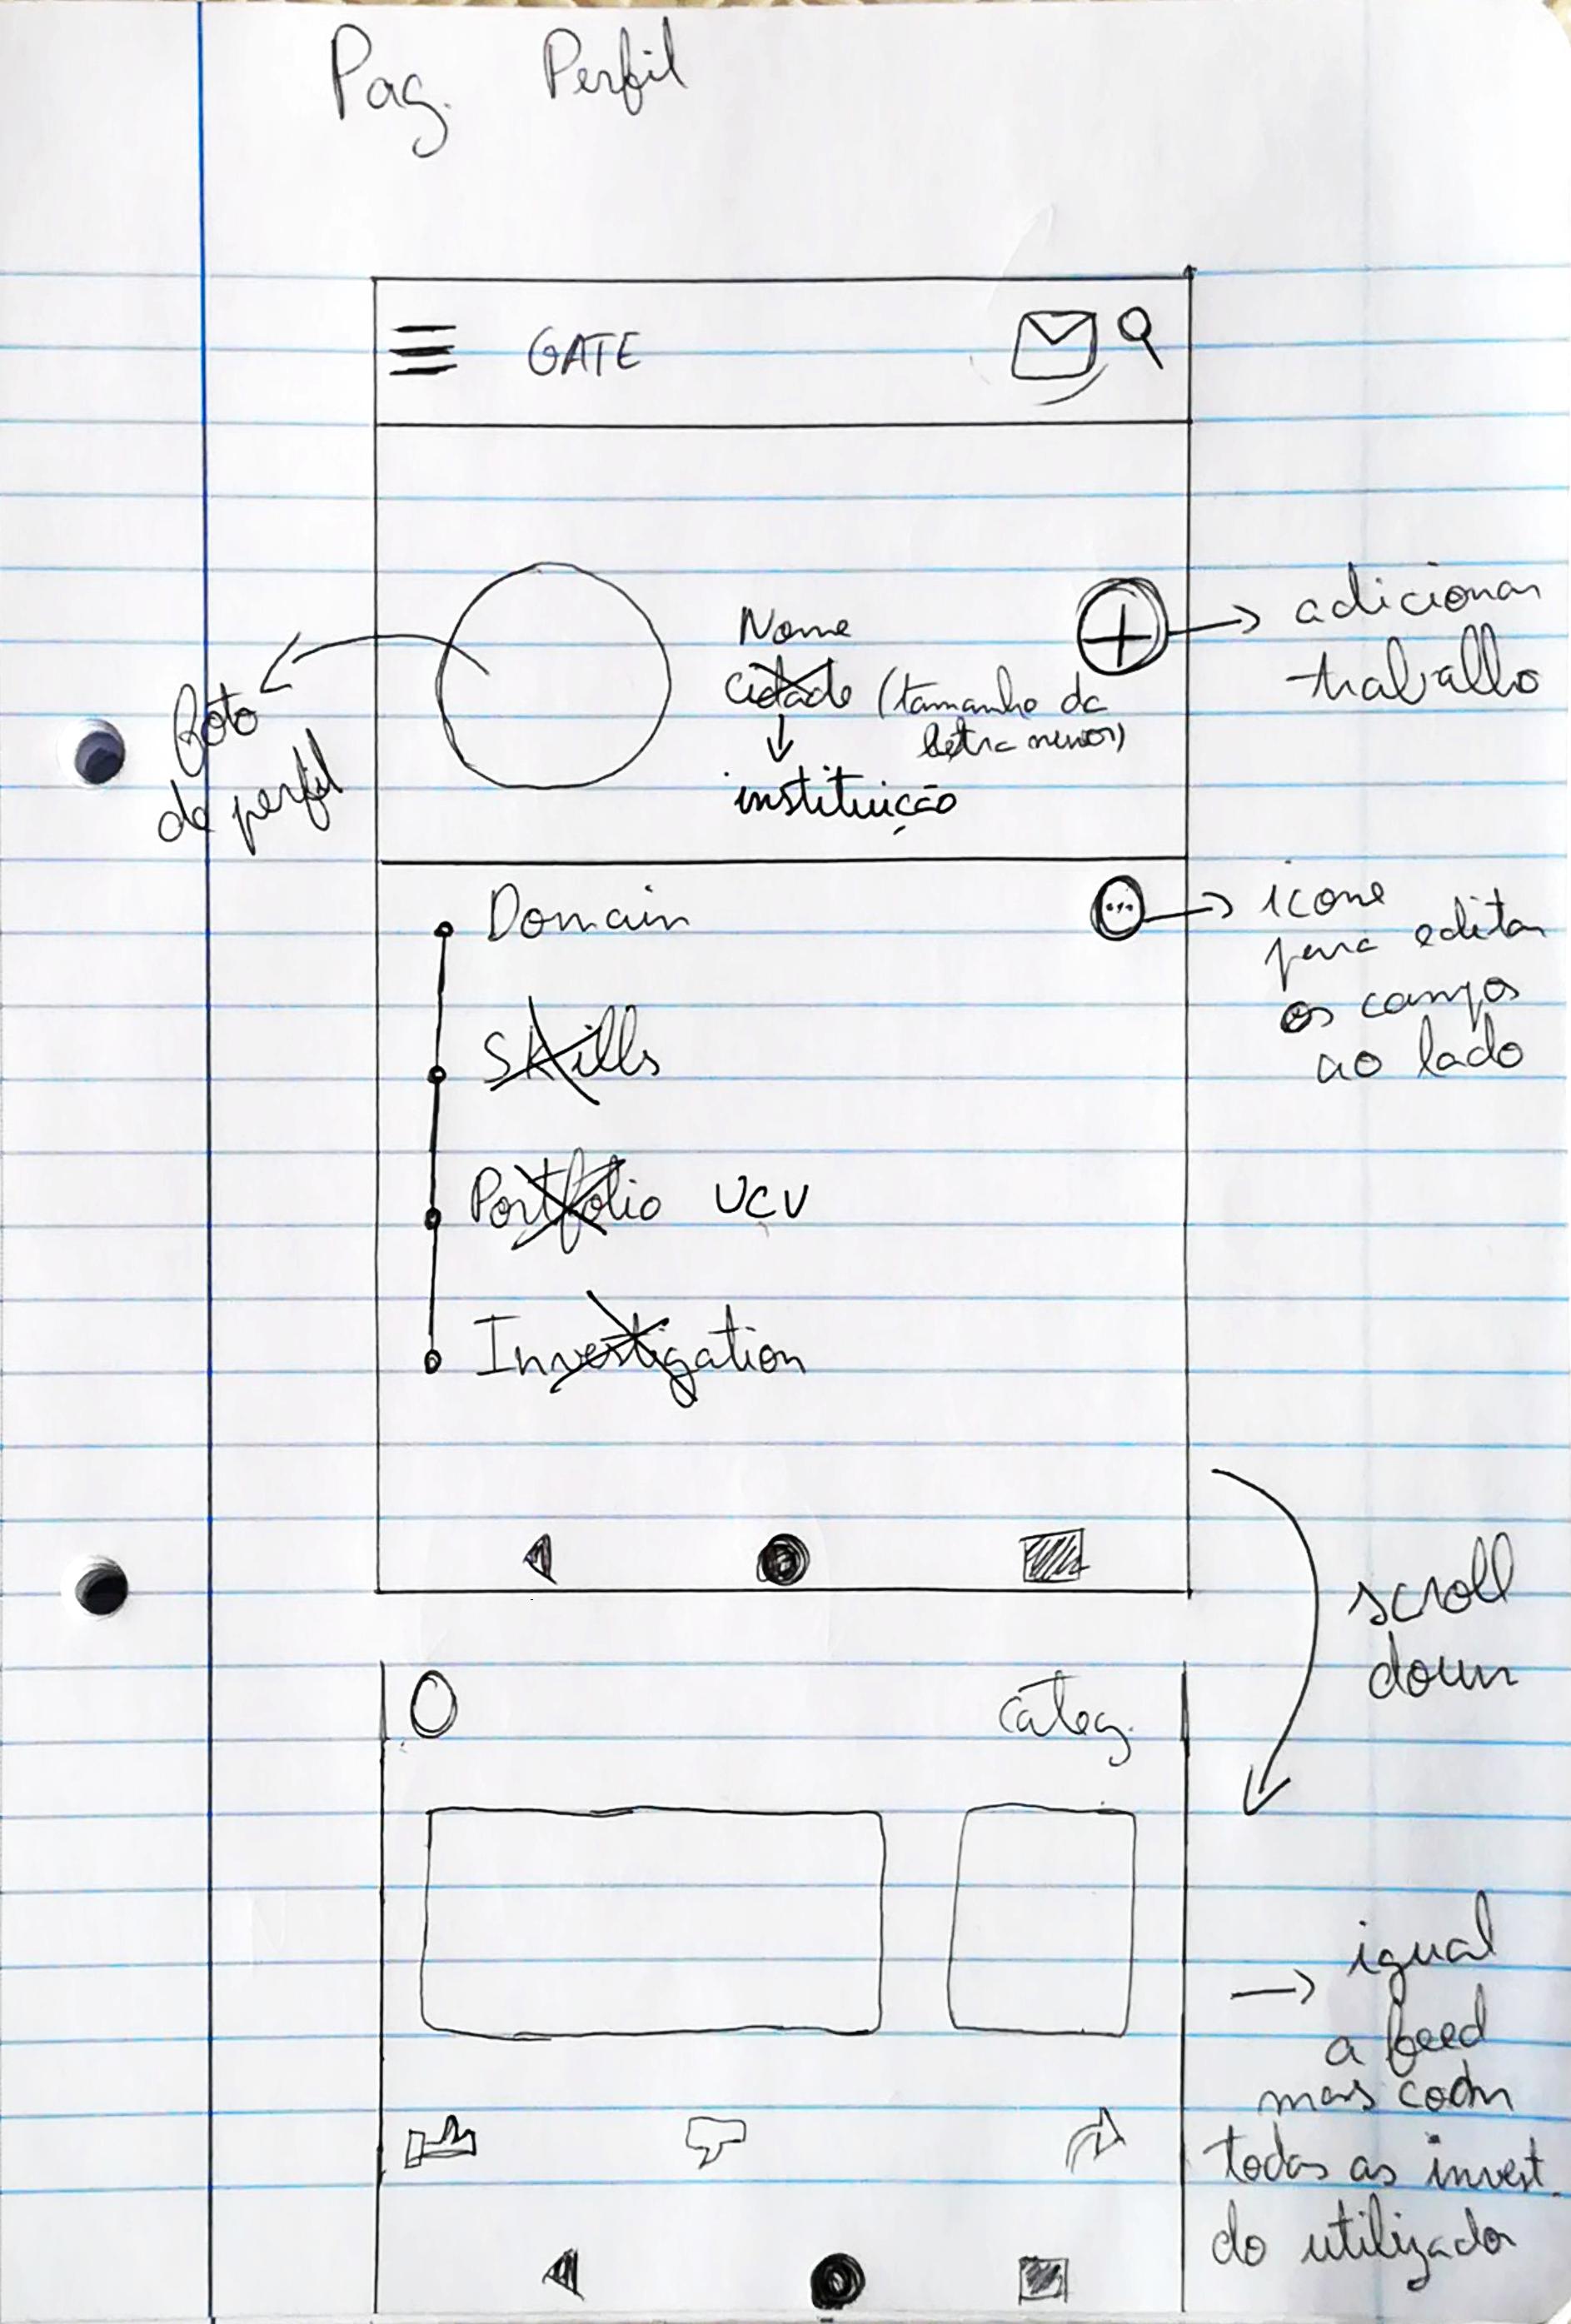 Pag. Perfil
GATE
Nome
Cidade (tamanho da
letra menor)
instituição
adicionar
trabalho
foto
de perfil
Domain
Skills
Portfolio UCV
Investigation
icone
para editar
os campos
ao lado
scroll
down
categ.
igual
a feed
mas com
todas as invest.
do utilizador